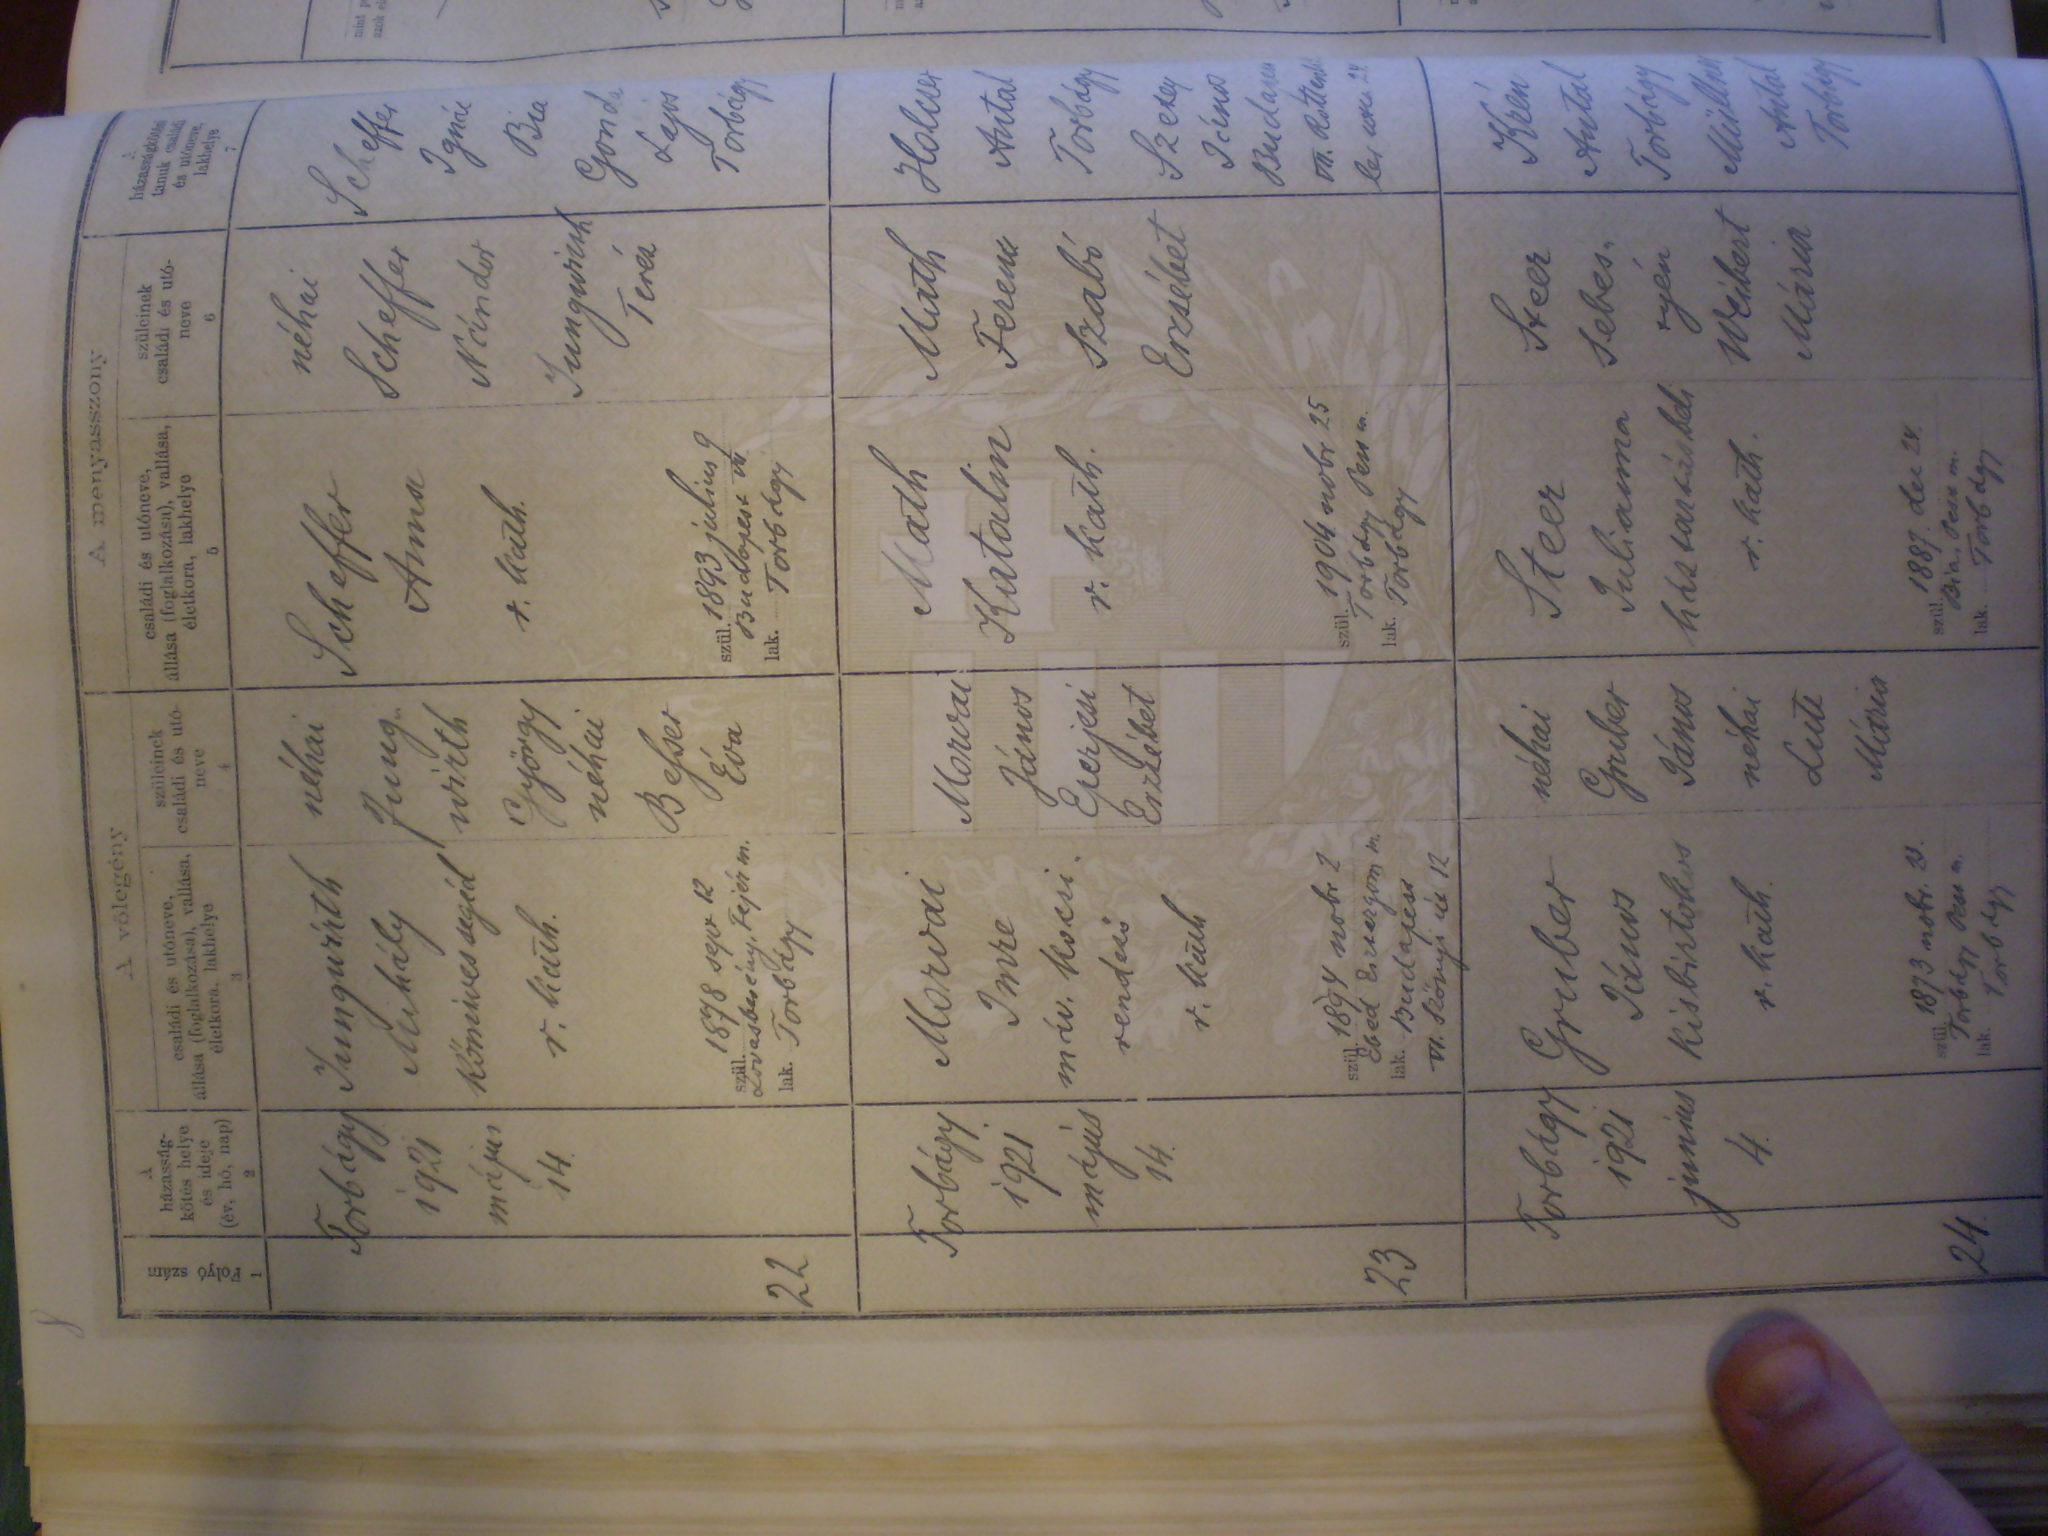 A vőlegény
A menyasszony
Folyó szám
A házasság-
kötés helye
és ideje
(év, hó, nap)
családi és utóneve,
állása (foglalkozása), vallása,
életkora, lakhelye
szüleinek
családi és utó-
neve
családi és utóneve,
állása (foglalkozása), vallása,
életkora, lakhelye
szüleinek
családi és utó-
neve
A
házasságkötési
tanuk családi
és utóneve,
lakhelye
1
2
3
4
5
6
7
22
Torbágy
1921
május
14.
Jungwirth
Mihály
kőmives segéd
r. kath.
szül. 1878 sept 12
Lovasberény, Fejér m.
lak. Torbágy
néhai
Jung-
wirth
György
néhai
Éva
Scheffer
Anna
r. kath.
szül. 1893 július 9
Budapest
lak. Torbágy
néhai
Scheffer
Nándor
Jungwirth
Teréz
Scheffer
Ignác
Bia
Gonda
Lajos
Torbágy
23
Torbágy
1921
május
14.
Morvai
Imre
máv. kocsi-
rendező
r. kath
szül. 1894 nobr 2
Ebed Esztergom m.
lak. Budapest
VI. Szőnyi út 12
Morvai
János
Eperjesi
Erzsébet
Math
Katalin
r. kath.
szül. 1904 nobr 25
Torbágy Pest m.
lak. Torbágy
Math
Ferenc
Szabó
Erzsébet
Antal
Torbágy
Budapest
24.
Torbágy
1921
junius
4.
Gruber
János
kisbirtokos
r. kath.
szül. 1873 nobr. 23.
Torbágy Pest m.
lak. Torbágy
néhai
Gruber
János
néhai
Lutt
Mária
Steer
Julianna
háztartásbeli
r. kath.
szül. 1887. dec 24.
Bia, Pest m.
lak. Torbágy
Steer
Sebes-
tyén
Weibert
Mária
Krén
Antal
Torbágy
Müllner
Antal
Torbágy